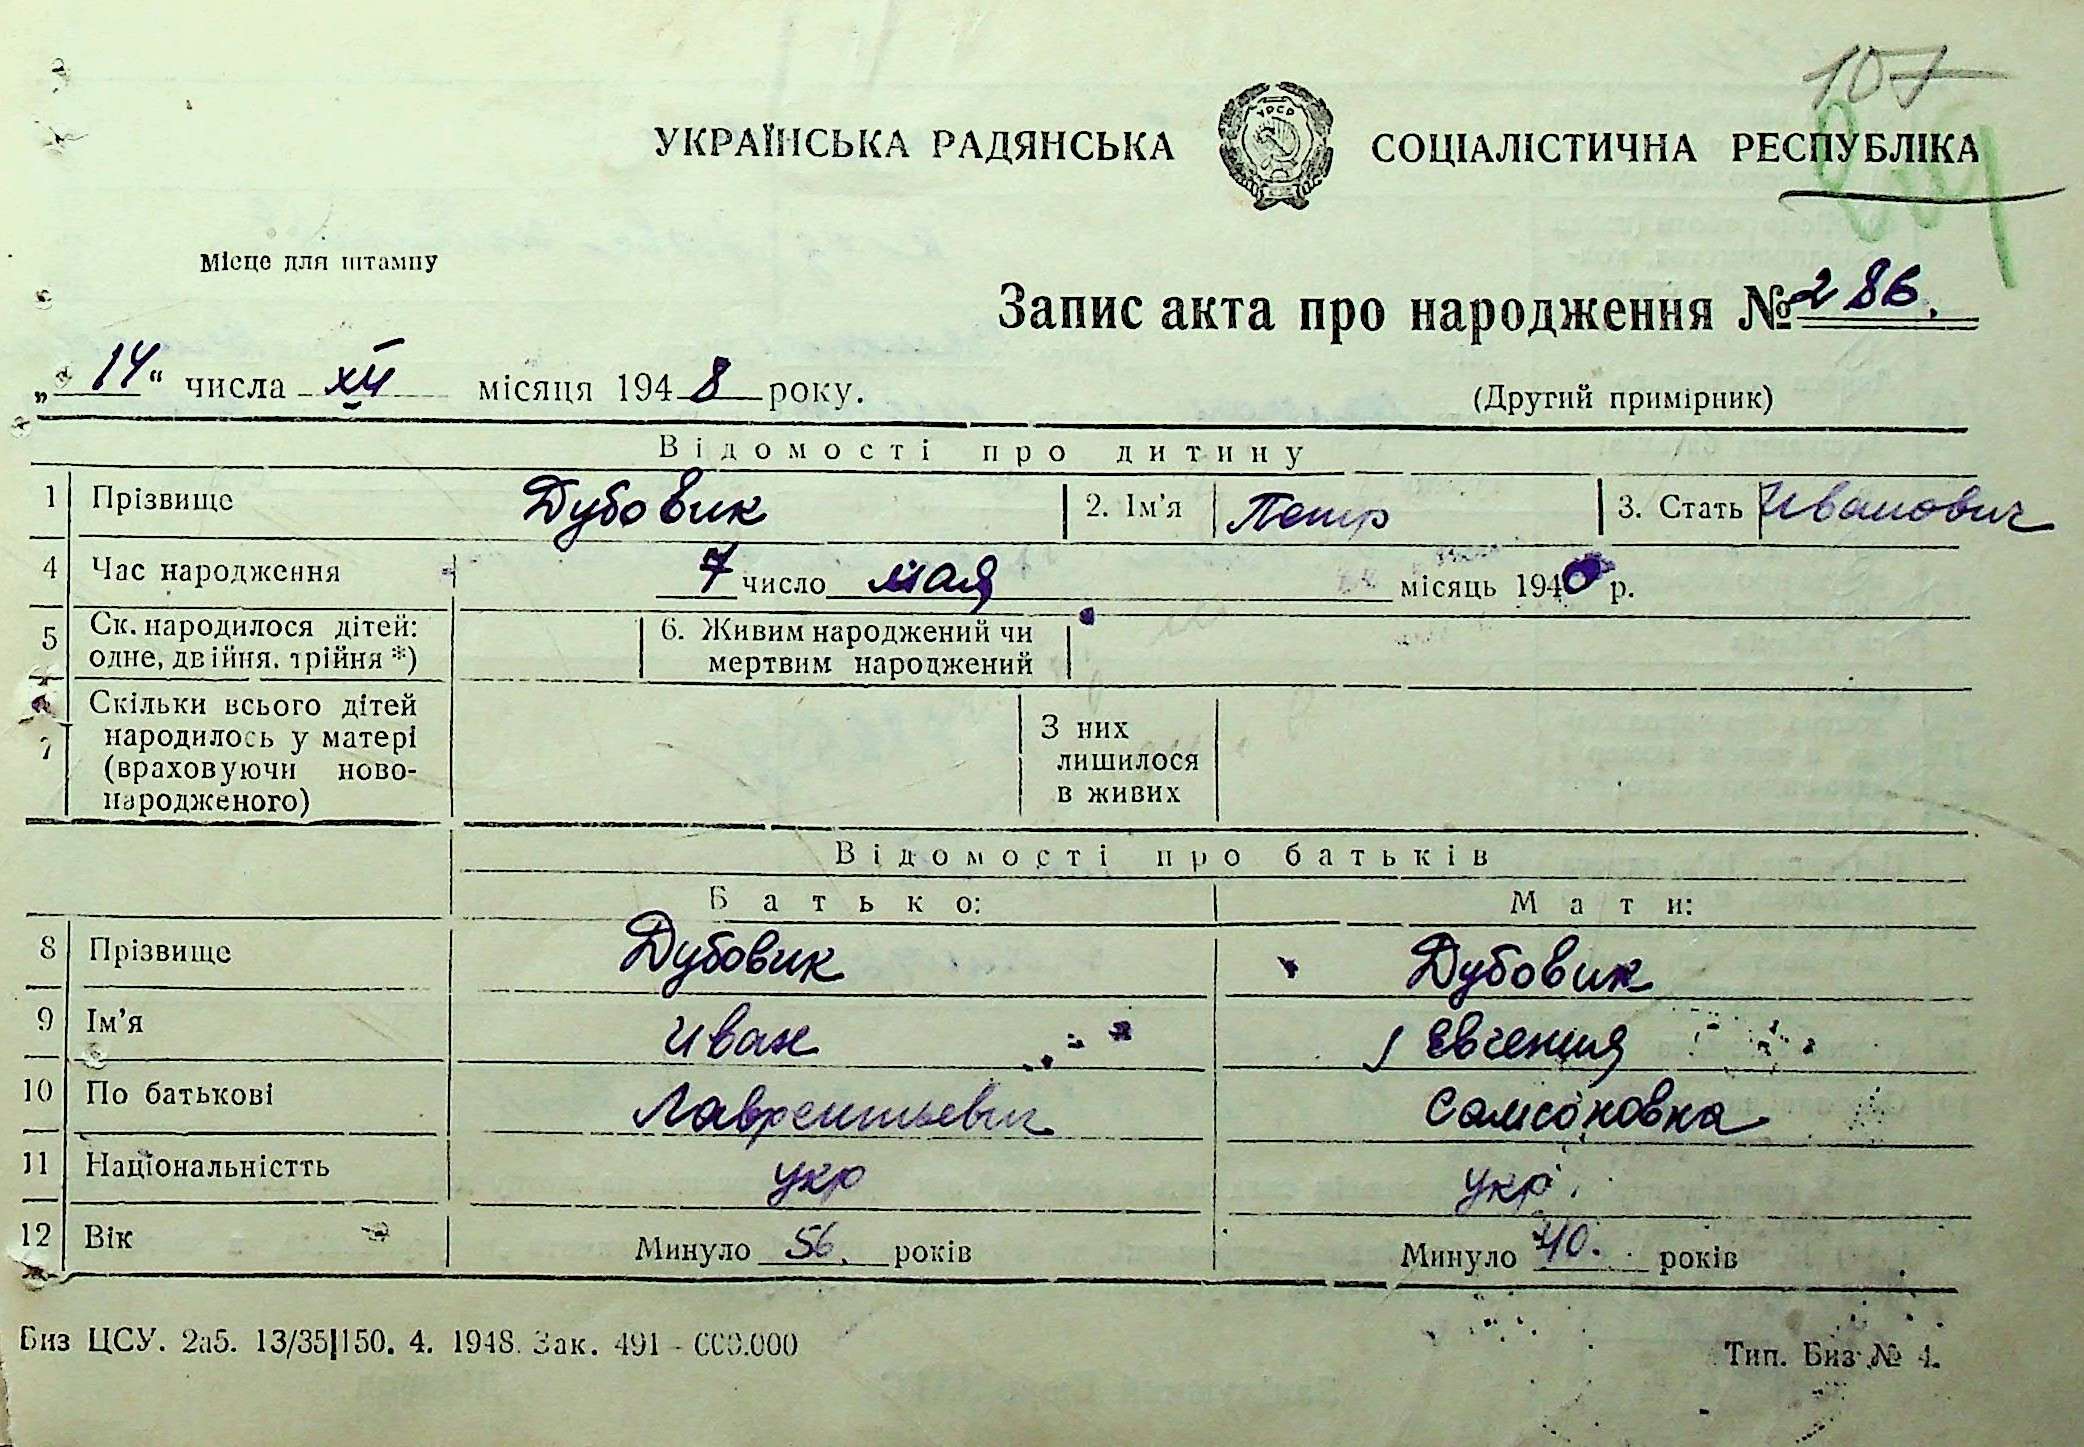 107
УКРАЇНСЬКА РАДЯНСЬКА УРСР СОЦІАЛІСТИЧНА РЕСПУБЛІКА
Місце для штампу
Запис акта про народження № 286.
„14“ числа XII місяця 1948 року.
(Другий примірник)
Відомості про дитину
1 Прізвище Дубовик 2. Ім'я Петр 3. Стать Иванович
4 Час народження 7 число мая місяць 1940 р.
5 Ск. народилося дітей: одне, двійня, трійня *) 6. Живим народжений чи мертвим народжений
7 Скільки всього дітей народилось у матері (враховуючи ново-народженого) З них лишилося в живих
Відомості про батьків
Батько: Мати:
8 Прізвище Дубовик Дубовик
9 Ім'я Иван Евгения
10 По батькові Лаврентьевич Самсоновна
11 Національністть укр укр.
12 Вік Минуло 56. років Минуло 40. років
Биз ЦСУ. 2аб. 13/35|150. 4. 1948. Зак. 491 - 000.000
Тип. Биз № 4.